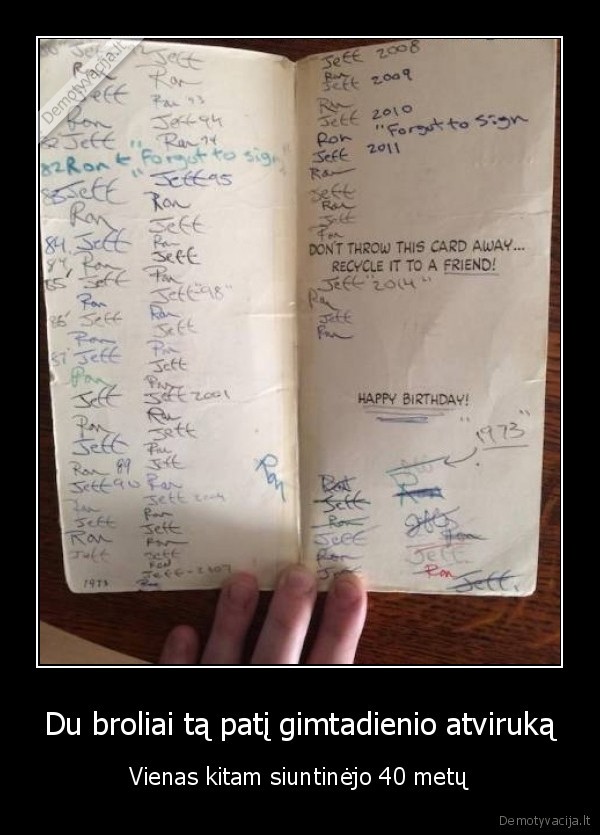 Demotyvacija.lt
Jeff
Ron
Jeff
Ron
82 Jeff
82 Ron "Forgot to sign"
83 Jeff
Ron
84 Jeff
84 Ron
85' Jeff
Ron
86' Jeff
Ron
87 Jeff
Ron
Jeff
Ron
Jeff
Ron 89
Jeff 90
Ron
Jeff
Ron
Jeff
1973
Jeff
Ron
Ron 93
Jeff 94
Ron 94
Jeff 95
Ron
Jeff
Ron
Jeff
Ron
Jeff "98"
Ron
Jeff
Ron
Jeff
Ron
Jeff 2001
Ron
Jeff
Ron
Jeff
Ron
Jeff 2004
Ron
Jeff
Ron
Jeff
Ron
Jeff - 2007
Ron
Ron
Jeff 2008
Ron
Jeff 2009
Ron
Jeff 2010
Ron "Forgot to sign
Jeff 2011
Ron
Jeff
Ron
Jeff
Ron
DON'T THROW THIS CARD AWAY...
RECYCLE IT TO A FRIEND!
Jeff "2014"
Ron
Jeff
Ron
HAPPY BIRTHDAY!
"1973"
Ron
Jeff
Ron
Jeff
Ron
Jeff
Jeff
Ron
Jeff
Ron
Jeff.
Du broliai tą patį gimtadienio atviruką
Vienas kitam siuntinėjo 40 metų
Demotyvacija.lt